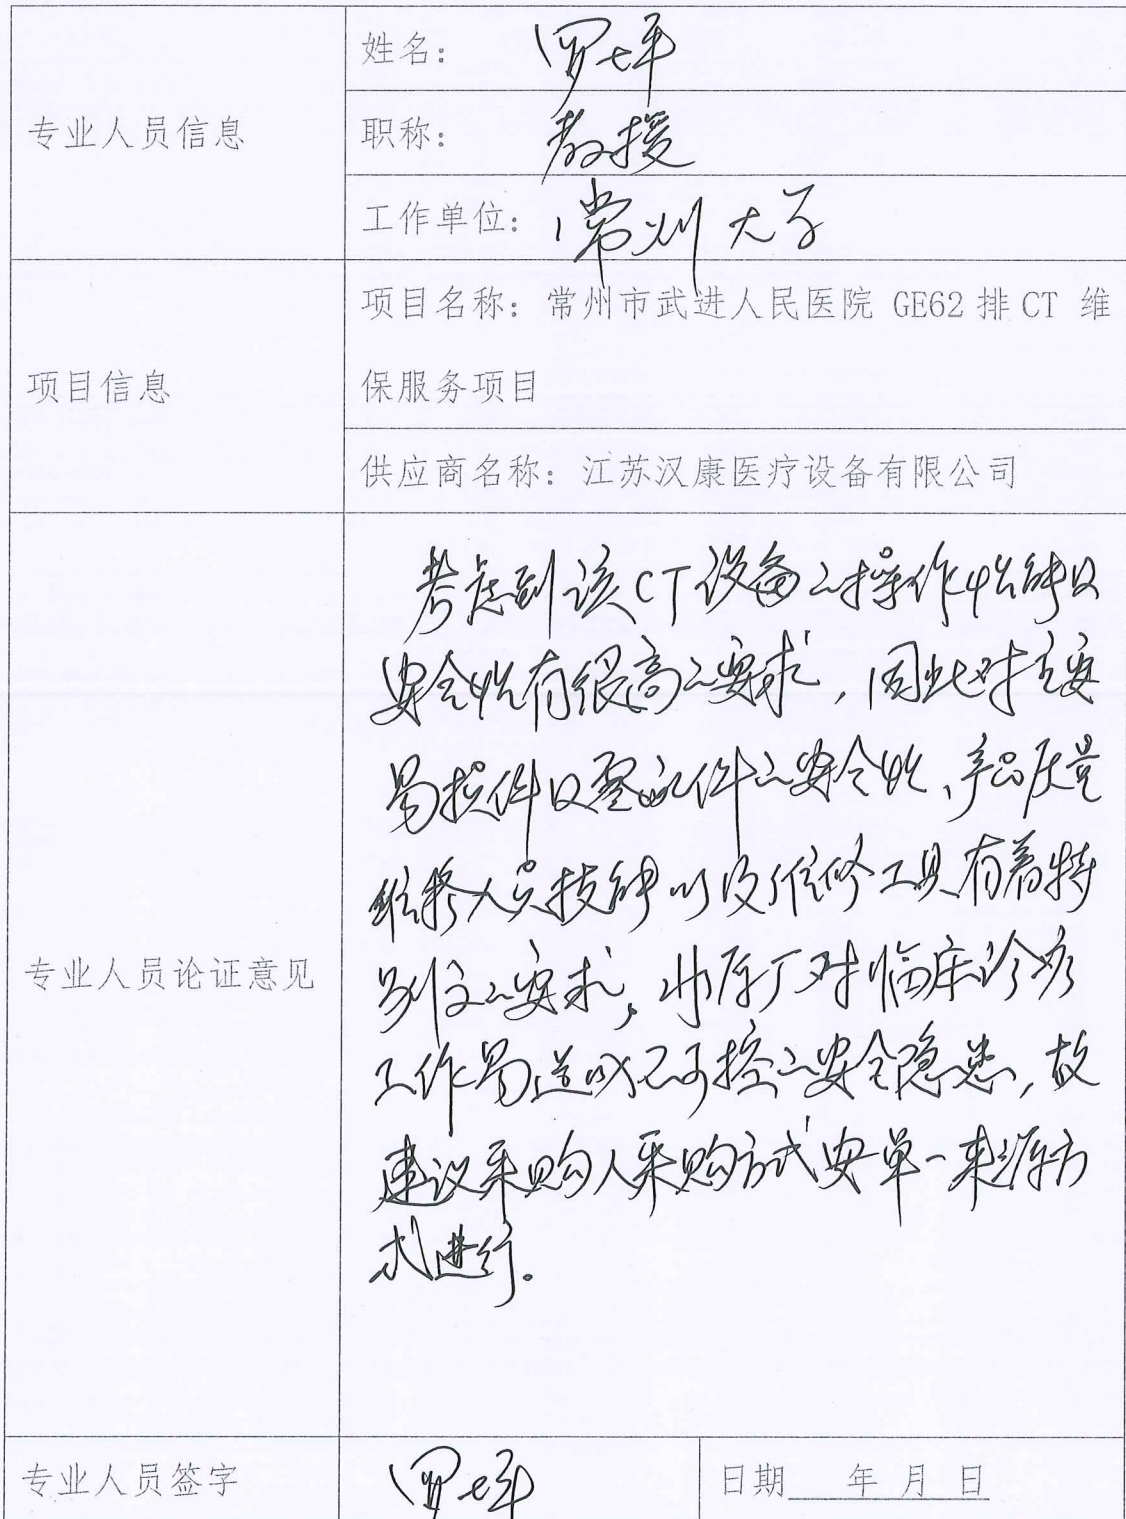 专业人员信息
姓名：
职称： 教授
工作单位： 常州大学
项目信息
项目名称：常州市武进人民医院 GE62 排 CT 维
保服务项目
供应商名称：江苏汉康医疗设备有限公司
专业人员论证意见
考虑到该CT设备之操作性能及
安全性有很高之要求，因此对主要
易损件及零配件之安全性、产品质量
维修人员技能以及维修工具有着特
别之要求，非原厂对临床诊疗
工作易造成不可控之安全隐患，故
建议采购人采购方式 单一来源方
式进行。
专业人员签字
日期 年 月 日